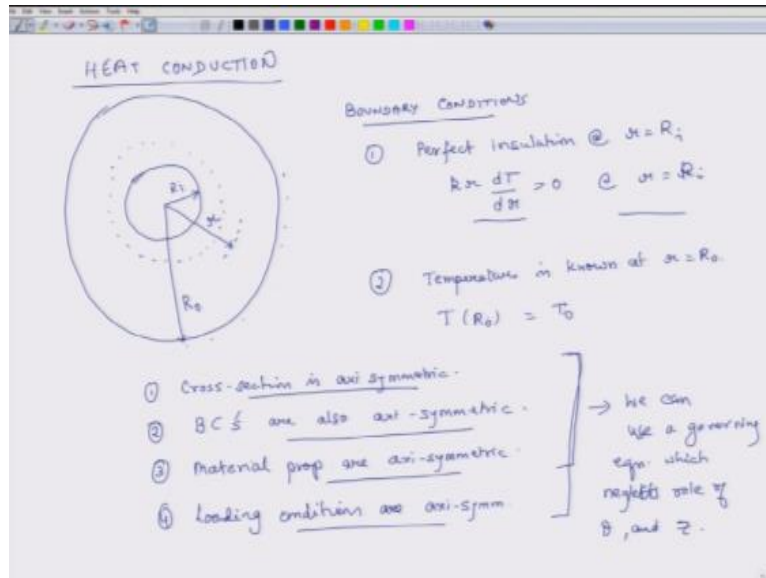 HEAT CONDUCTION
Ri
r
Ro
BOUNDARY CONDITIONS
① Perfect insulation @ r = Ri
kr dT/dr = 0 @ r = Ri
② Temperature is known at r = Ro.
T (Ro) = To
① Cross-section is axi symmetric.
② BC's are also axi-symmetric.
③ Material prop are axi-symmetric.
④ Loading conditions are axi-symm.
→ We can
use a governing
eqn. which
neglects role of
θ, and z.